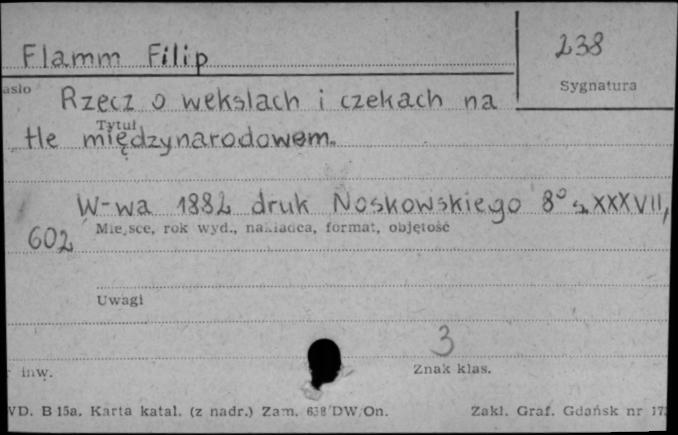 Flamm Filip
238
Sygnatura
asło
Rzecz o wekslach i czekach na
Tytuł
tle międzynarodowem.
W-wa 1882 druk Noskowskiego 8° s. XXXVII,
Miejsce, rok wyd., nakładca, format, objętość
602
Uwagi
3
inw.
Znak klas.
WD. B 15a. Karta katal. (z nadr.) Zam. 638 DW/On.
Zakł. Graf. Gdańsk nr 17